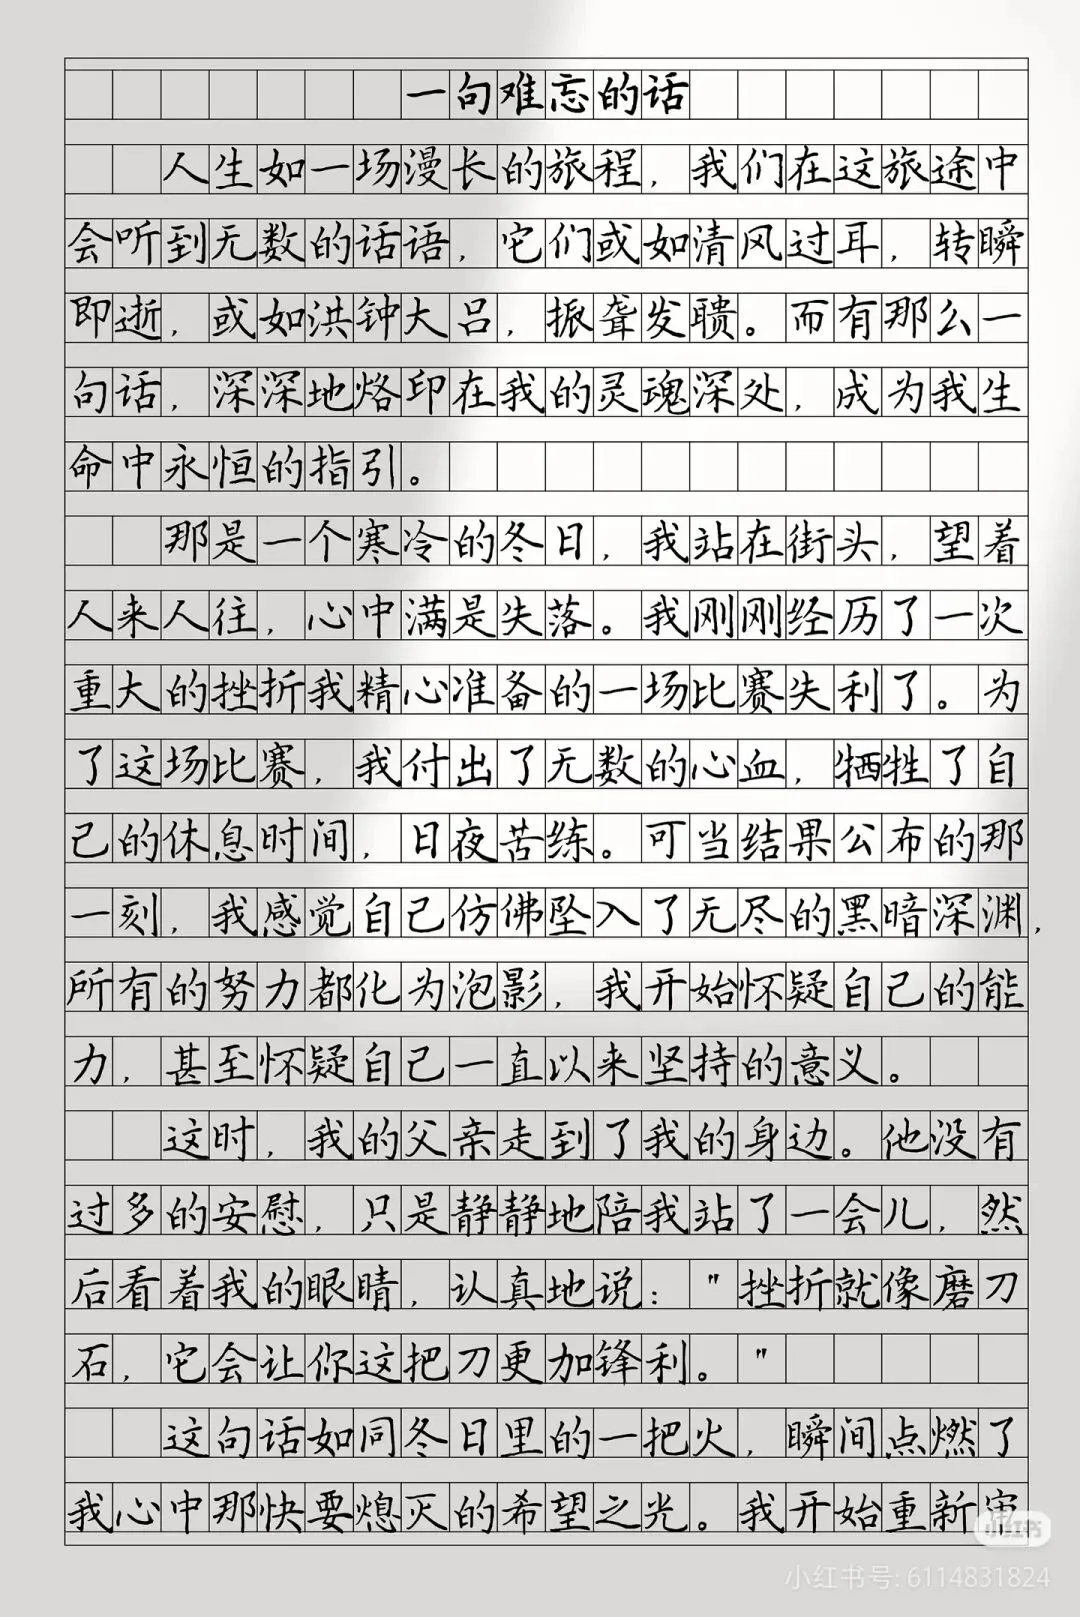 一句难忘的话
人生如一场漫长的旅程，我们在这旅途中
会听到无数的话语，它们或如清风过耳，转瞬
即逝，或如洪钟大吕，振聋发聩。而有那么一
句话，深深地烙印在我的灵魂深处，成为我生
命中永恒的指引。
那是一个寒冷的冬日，我站在街头，望着
人来人往，心中满是失落。我刚刚经历了一次
重大的挫折我精心准备的一场比赛失利了。为
了这场比赛，我付出了无数的心血，牺牲了自
己的休息时间，日夜苦练。可当结果公布的那
一刻，我感觉自己仿佛坠入了无尽的黑暗深渊，
所有的努力都化为泡影，我开始怀疑自己的能
力，甚至怀疑自己一直以来坚持的意义。
这时，我的父亲走到了我的身边。他没有
过多的安慰，只是静静地陪我站了一会儿，然
后看着我的眼睛，认真地说："挫折就像磨刀
石，它会让你这把刀更加锋利。"
这句话如同冬日里的一把火，瞬间点燃了
我心中那快要熄灭的希望之光。我开始重新审
小红书
小红书号: 6114831824